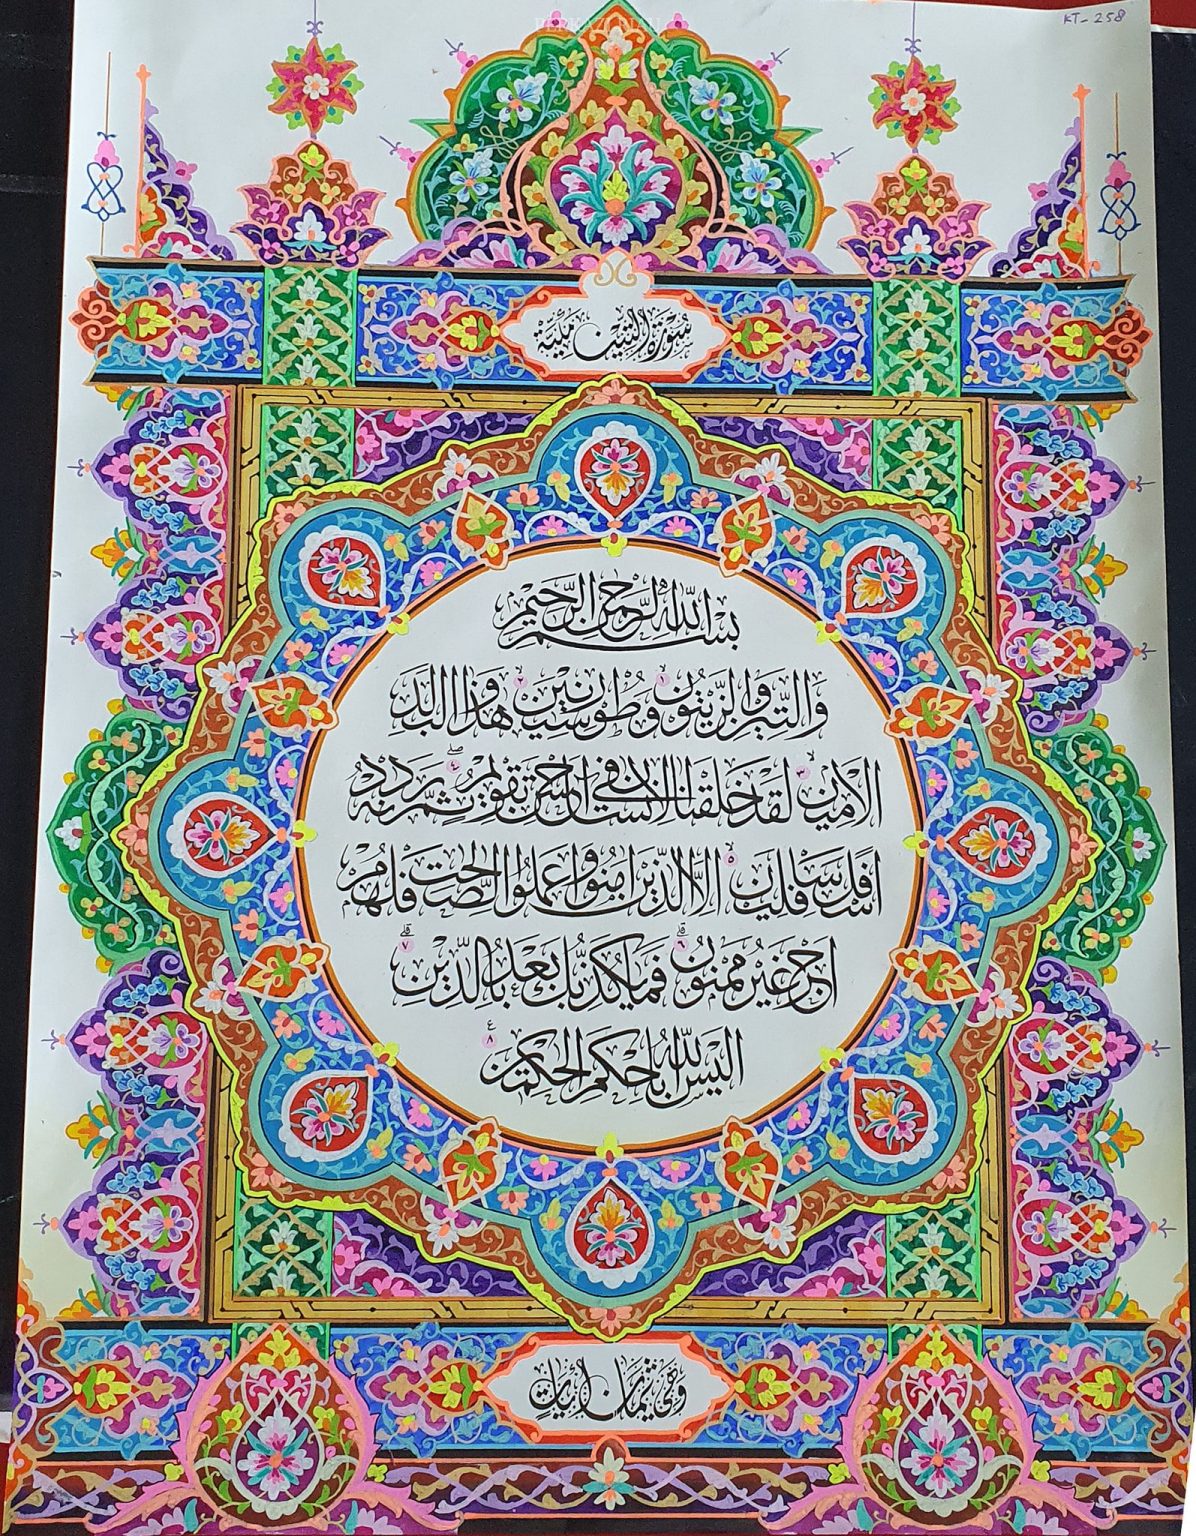 KT- 258
سُوْرَةُ التِّيْنِ مَكِّيَّةٌ
بِسْمِ اللّٰهِ الرَّحْمٰنِ الرَّحِيْمِ
وَالتِّيْنِ وَالزَّيْتُوْنِ ١ وَطُوْرِ سِيْنِيْنَ ٢ وَهٰذَا الْبَلَدِ
الْاَمِيْنِ ٣ لَقَدْ خَلَقْنَا الْاِنْسَانَ فِيْ اَحْسَنِ تَقْوِيْمٍ ٤ ثُمَّ رَدَدْنٰهُ
اَسْفَلَ سَافِلِيْنَ ٥ اِلَّا الَّذِيْنَ اٰمَنُوْا وَعَمِلُوا الصّٰلِحٰتِ فَلَهُمْ
اَجْرٌ غَيْرُ مَمْنُوْنٍ ٦ فَمَا يُكَذِّبُكَ بَعْدُ بِالدِّيْنِ ٧
اَلَيْسَ اللّٰهُ بِاَحْكَمِ الْحٰكِمِيْنَ ٨
وَهِيَ ثَمَانُ أٰيَاتٍ